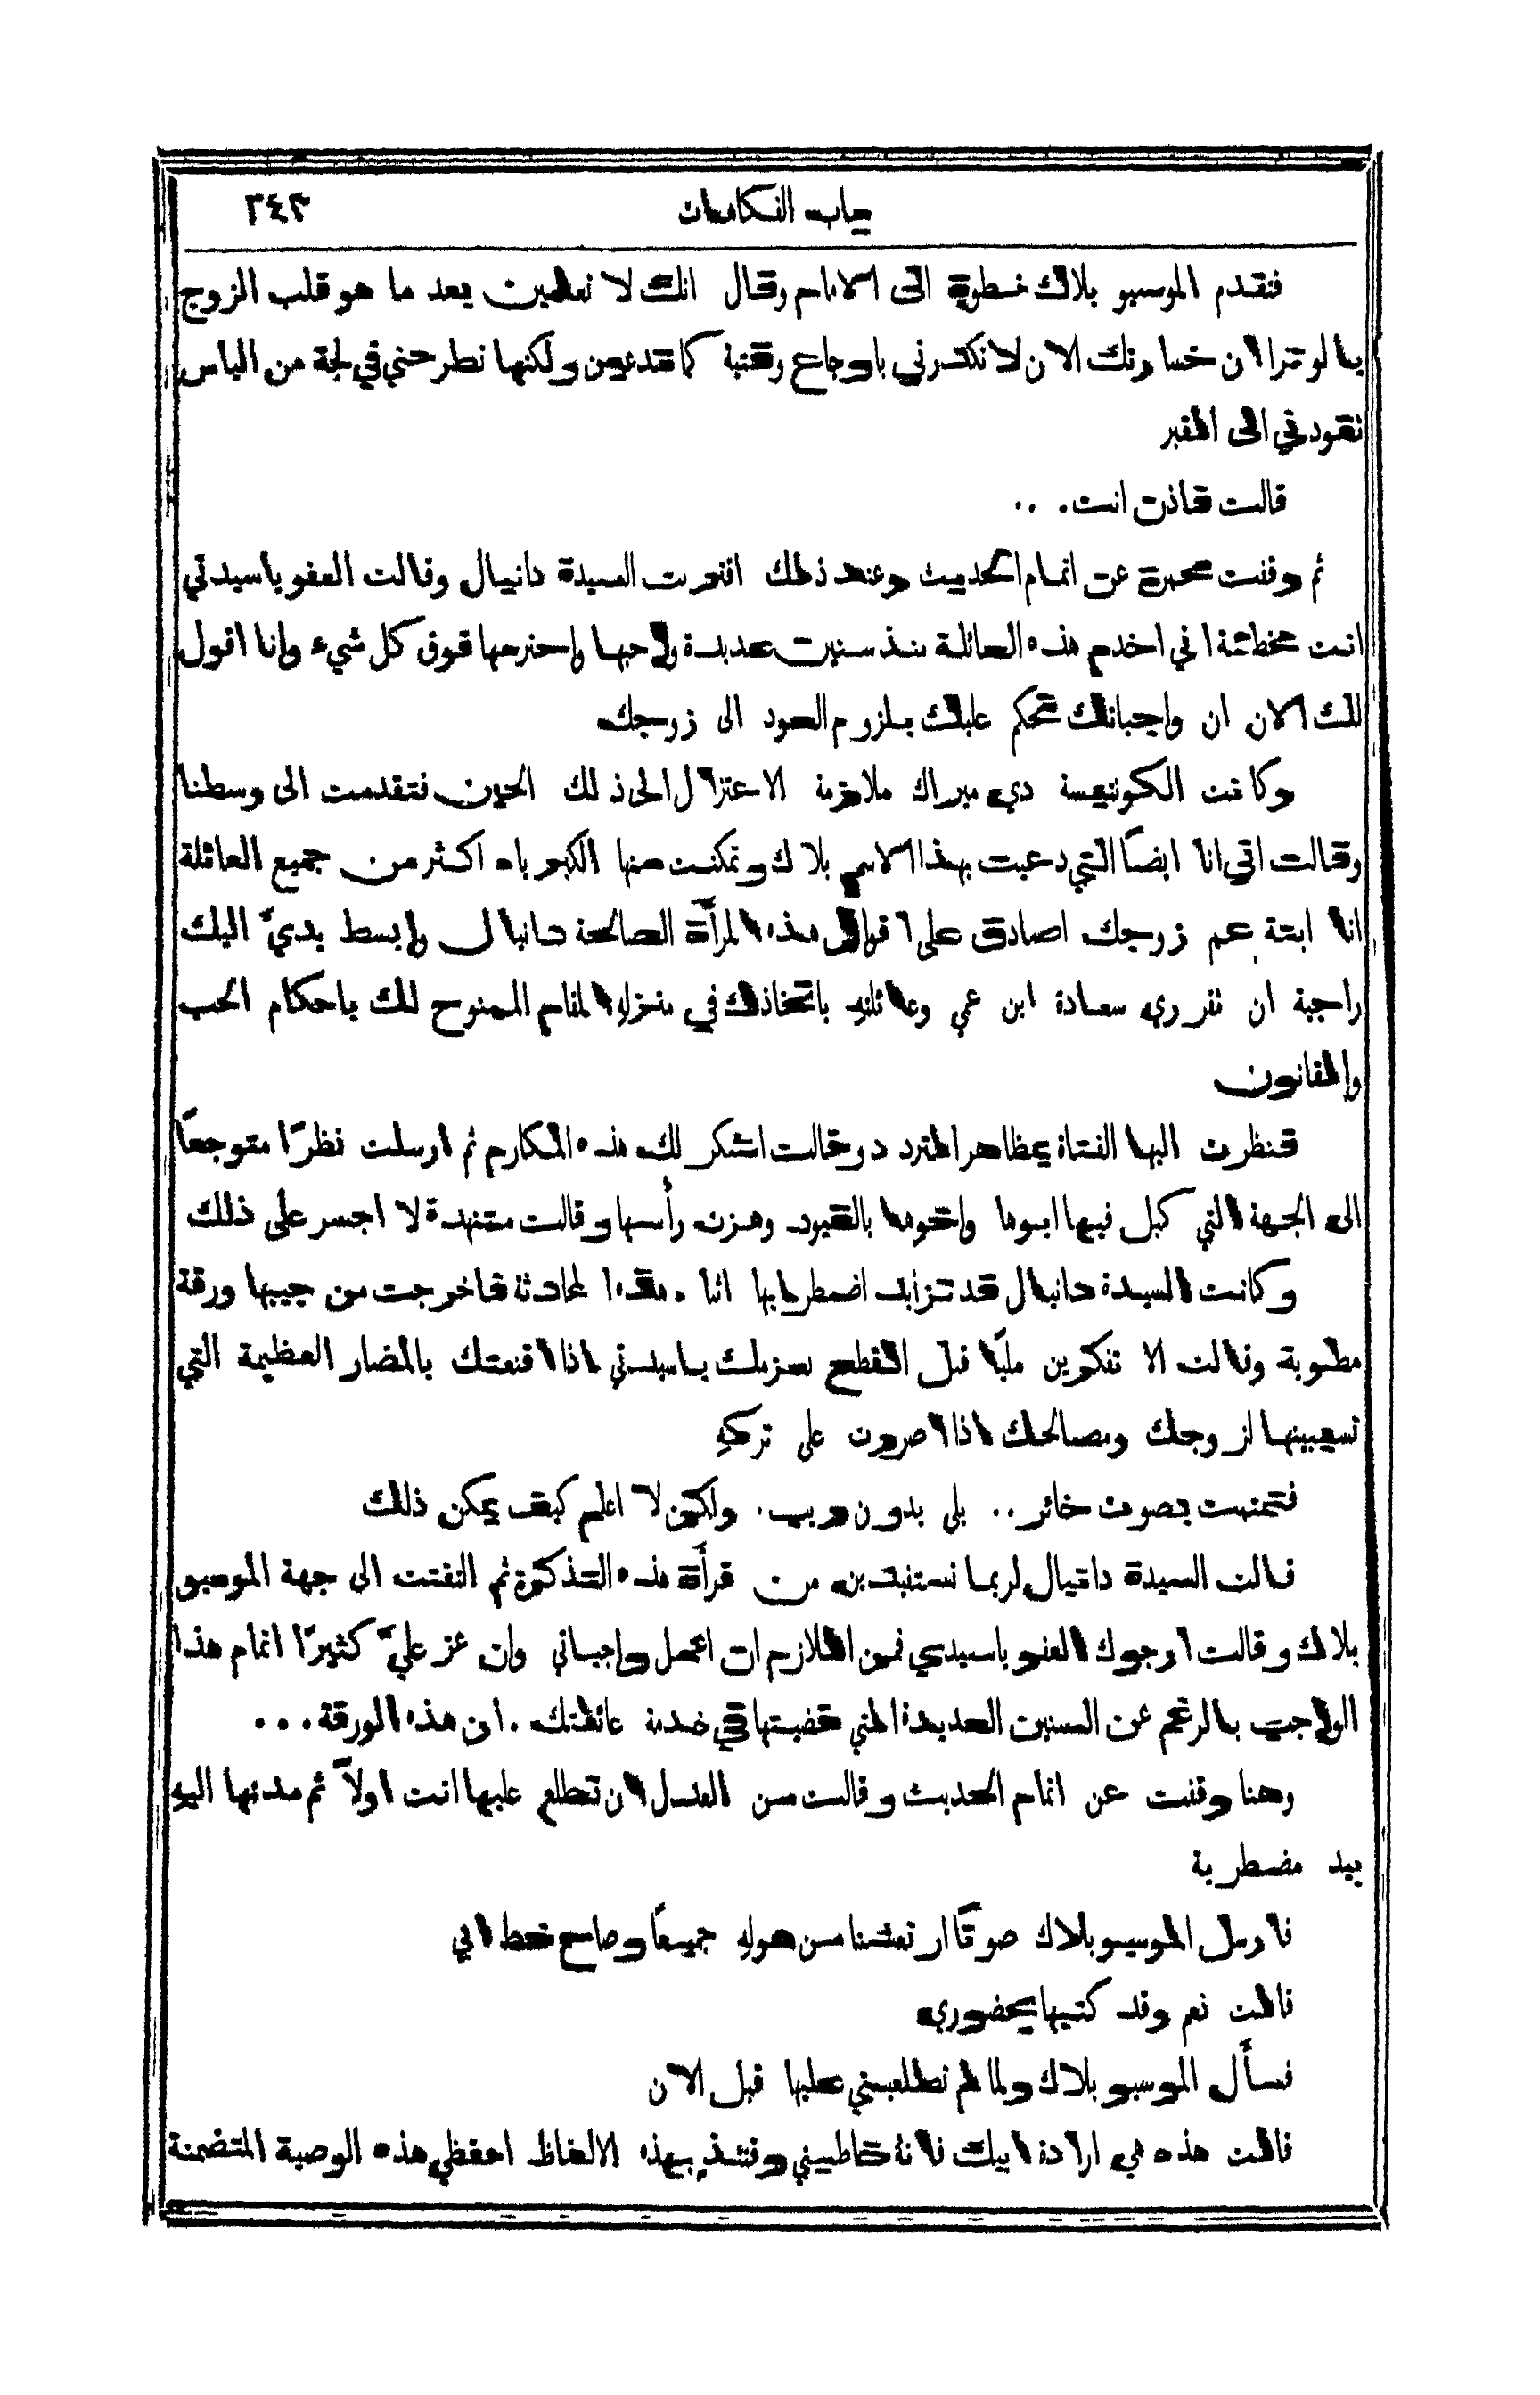 باب الفكاهات ٣٤٣
فتقدم الموسيو بلاك خطوة الى الامام وقال انك لا تعلمين بعد ما هو قلب الزوج
يا لوترا ان خسارتك الان لا تكدرني باوجاع وقتية كما تدعين ولكنها تطرحني في لجة من الياس
تقودني الى القبر
قالت فاذن انت. ..
ثم وقفت محمرة عن اتمام الحديث وعند ذلك اقتربت السيدة دانيال وقالت العفو ياسيدتي
انت مخطئة اني اخدم هذه العائلة منذ سنين عديدة واحبها واحترمها فوق كل شيء وانا اقول
لك الان ان واجباتك تحكم عليك بلزوم العود الى زوجك
وكانت الكونتيسة دي ميراك ملازمة الاعتزال الى ذلك الحين فتقدمت الى وسطنا
وقالت اني انا ايضًا التي دعيت بهذا الاسم بلاك وتمكنت منها الكبرياء اكثر من جميع العائلة
انا ابنة عم زوجك اصادق على اقوال هذه المرأة الصالحة دانيال وابسط يديَّ اليك
راجية ان تقرري سعادة ابن عمي وعائلتهِ باتخاذك في منزلهِ المقام الممنوح لك باحكام الحب
والقانون
فنظرت اليها الفتاة بمظاهر التردد وقالت اشكر لك هذه المكارم ثم ارسلت نظرًا متوجعًا
الى الجهة التي كبل فيها ابوها واخوها بالقيود وهزت رأسها وقالت متنهدة لا اجسر على ذلك
وكانت السيدة دانيال قد تزايد اضطرابها اثناء هذه المحادثة فاخرجت من جيبها ورقة
مطوية وقالت الا تفكرين مليًا قبل القطع بعزمك ياسيدتي اذا اقنعتك بالمضار العظيمة التي
تسببينها لزوجك ومصالحك اذا اصررت على تركهِ
فتمتمت بصوت خائر.. بلى بدون ريب. ولكن لا اعلم كيف يمكن ذلك
قالت السيدة دانيال لربما تستفيدين من قرأة هذه التذكرة ثم التفتت الى جهة الموسيو
بلاك وقالت ارجوك العفو ياسيدي فمن اللازم ان اعمل واجباتي وان عز عليَّ كثيرًا اتمام هذا
الواجب بالرغم عن السنين العديدة التي قضيتها في خدمة عائلتك. ان هذه الورقة...
وهنا وقفت عن اتمام الحديث وقالت من العدل ان تطلع عليها انت اولاً ثم مدتها اليهِ
بيد مضطربة
فارسل الموسيو بلاك صوتًا ارتعشنا من هولهِ جميعًا وصاح خط ابي
قالت نعم وقد كتبها بحضوري
فسأل الموسيو بلاك ولما لم تطلعيني عليها قبل الان
قالت هذه هي ارادة ابيك فانهُ خاطبني وقتئذٍ بهذه الالفاظ احفظي هذه الوصية المتضمنة